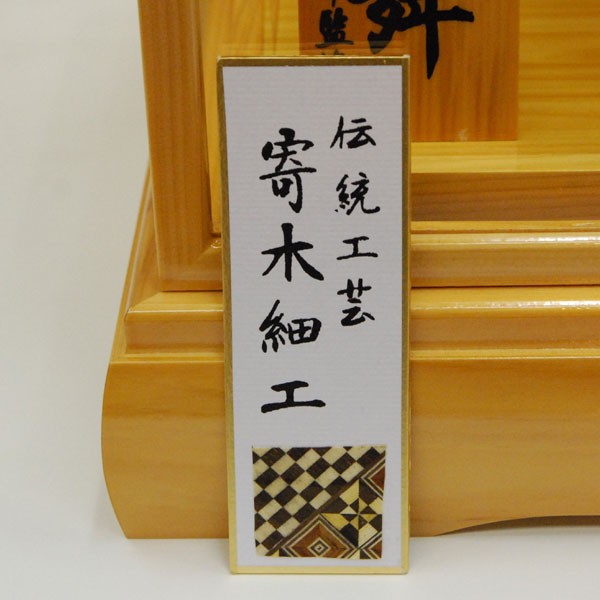 伝統工芸
寄木細工